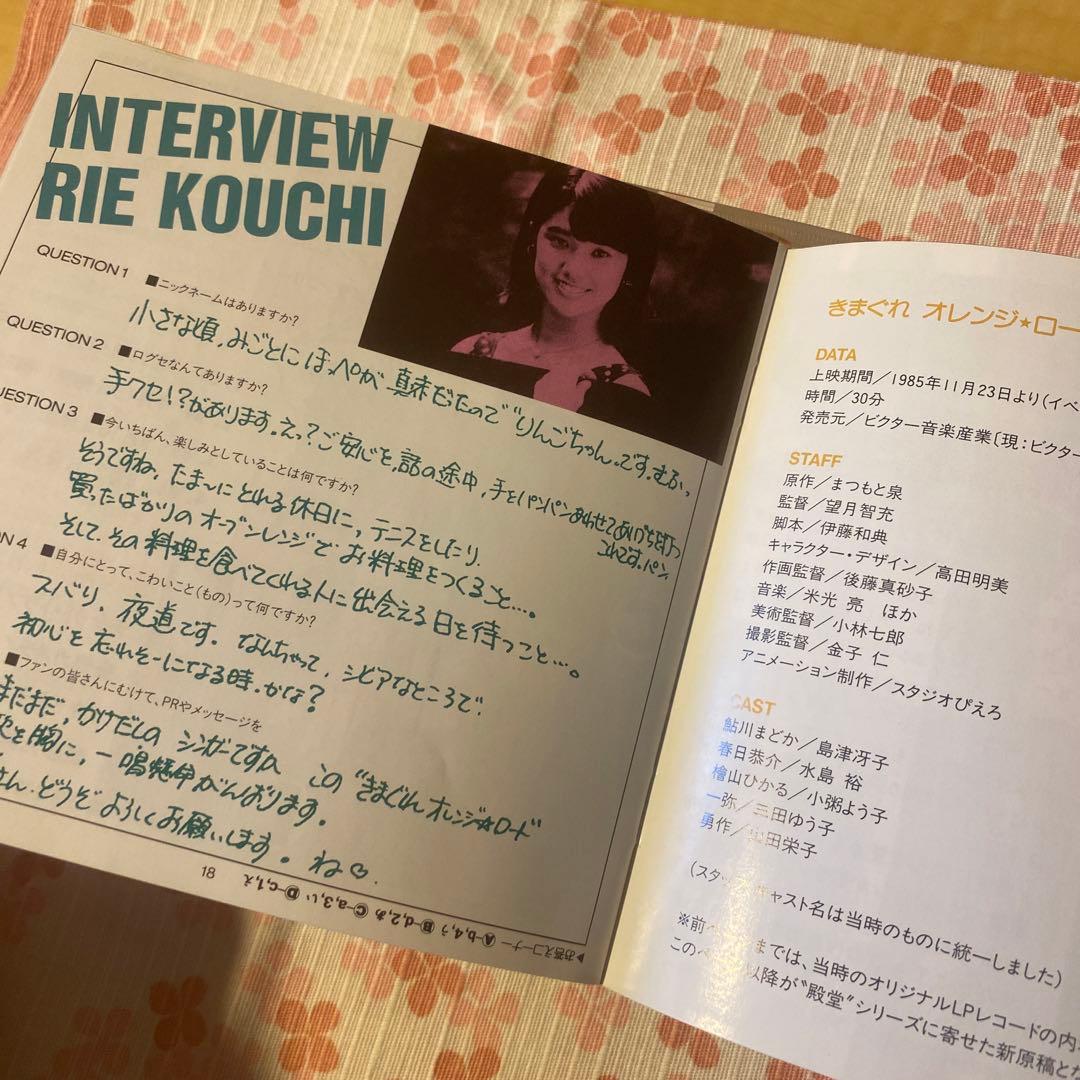 INTERVIEW
RIE KOUCHI
QUESTION 1
■ニックネームはありますか?
小さな頃,みごとに ほっペが 真赤だったので"りんごちゃん"です.むふっ
QUESTION 2
■口グセなんてありますか?
手クセ!?があります.えっ?ご安心を,話の途中,手をパンパンあわせてあいづちを打つ
コれです.パン
UESTION 3
■今いちばん、楽しみとしていることは何ですか?
そうですね.たま〜にとれる休日に,テニスをしたり.
買ったばかりのオーブンレンジで お料理をつくること…。
そして.その料理を食べてくれる人に出会える日を待つこと…。
ON 4
■自分にとって、こわいこと(もの)って何ですか?
ズバリ.夜道です.なんちゃって,シビアなところで.
初心を忘れそーになる時.かな?
■ファンの皆さんにむけて、PRやメッセージを
まだまだ,かけだしの シンガーですが この"きまぐれオレンジ☆ロード
を胸に,一鳴懸命がんばります.
さん.どうぞ よろしくお願いします。ね
18
▶お答えコーナー Ⓐ-b,4,う Ⓑ-d,2,あ Ⓒ-a,3,い Ⓓ-c,1,え
きまぐれ オレンジ★ロー
DATA
上映期間/1985年11月23日より(イベ
時間/30分
発売元/ビクター音楽産業〔現:ビクター
STAFF
原作/まつもと泉
監督/望月智充
脚本/伊藤和典
キャラクター・デザイン/高田明美
作画監督/後藤真砂子
音楽/米光 亮 ほか
美術監督/小林七郎
撮影監督/金子 仁
アニメーション制作/スタジオぴえろ
CAST
鮎川まどか/島津冴子
春日恭介/水島 裕
檜山ひかる/小粥よう子
一弥/三田ゆう子
勇作/山田栄子
(スタッフ・キャスト名は当時のものに統一しました)
※前ページまでは、当時のオリジナルLPレコードの内
このページ以降が"殿堂"シリーズに寄せた新原稿とな